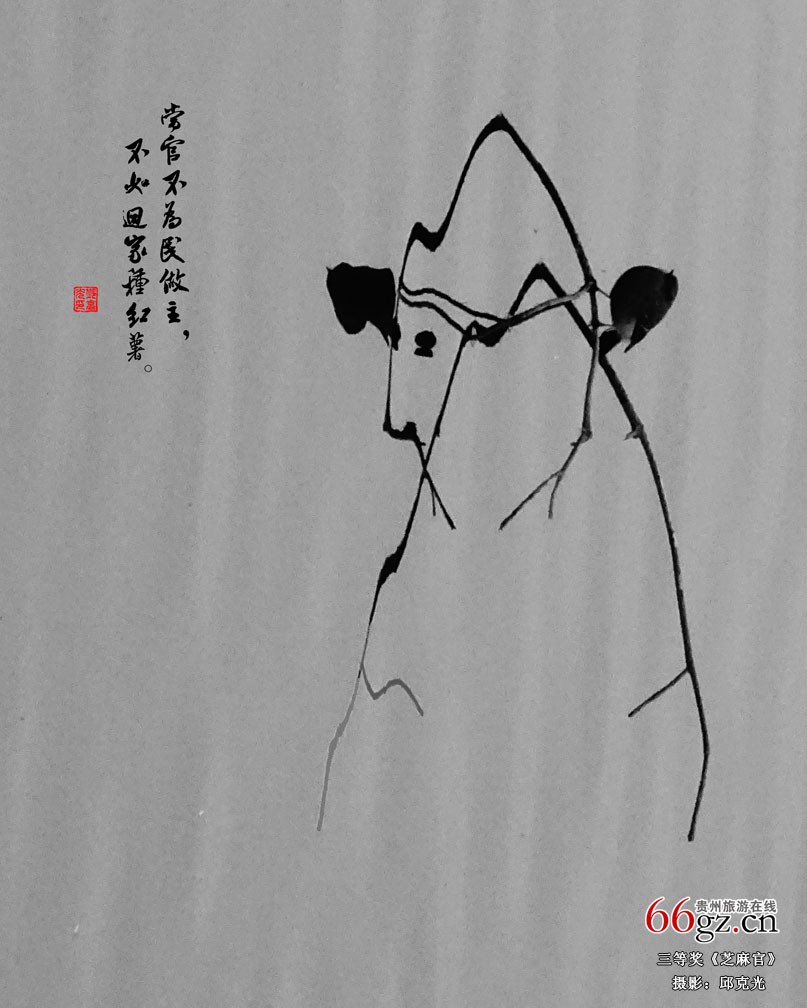 当官不为民做主，
不如回家種红薯。
贵州旅游在线
66gz.cn
三等奖《芝麻官》
摄影：邱克光